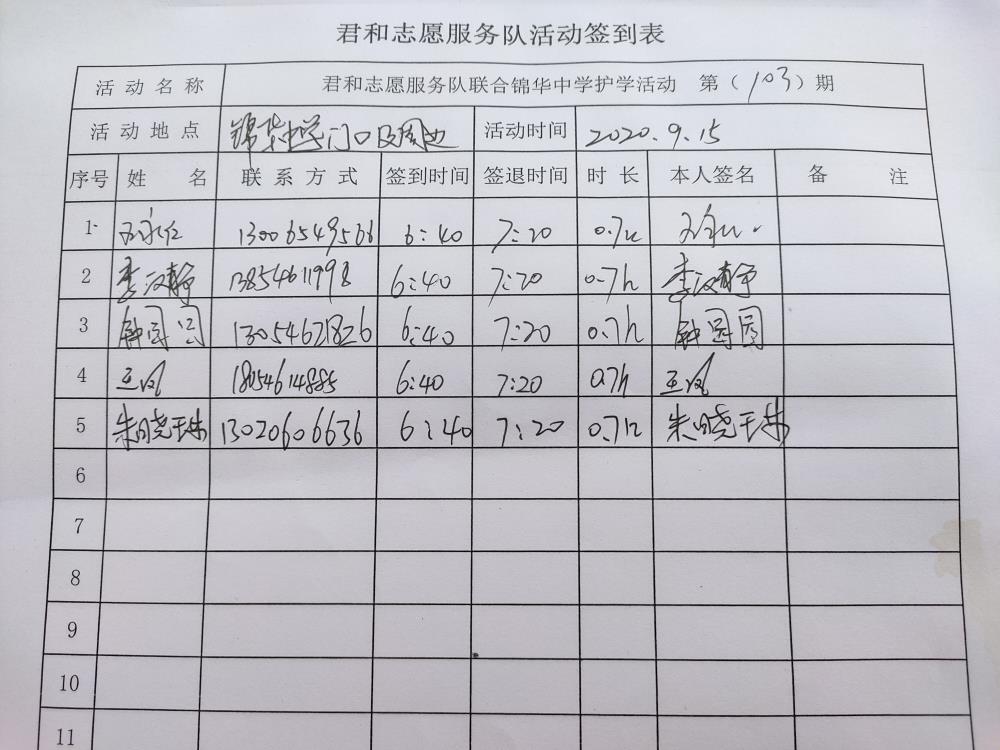 君和志愿服务队活动签到表
活动名称 君和志愿服务队联合锦华中学护学活动 第（103）期
活动地点 锦华中学门口及周边 活动时间 2020.9.15
序号 姓名 联系方式 签到时间 签退时间 时长 本人签名 备注
1 13006549566 6:40 7:20 0.7h
2 李汉静 13854611998 6:40 7:20 0.7h 李汉静
3 园园 13054621826 6:40 7:20 0.7h 园园
4 王凤 18054614885 6:40 7:20 0.7h 王凤
5 朱晓珠 13020606636 6:40 7:20 0.7h 朱晓珠
6
7
8
9
10
11